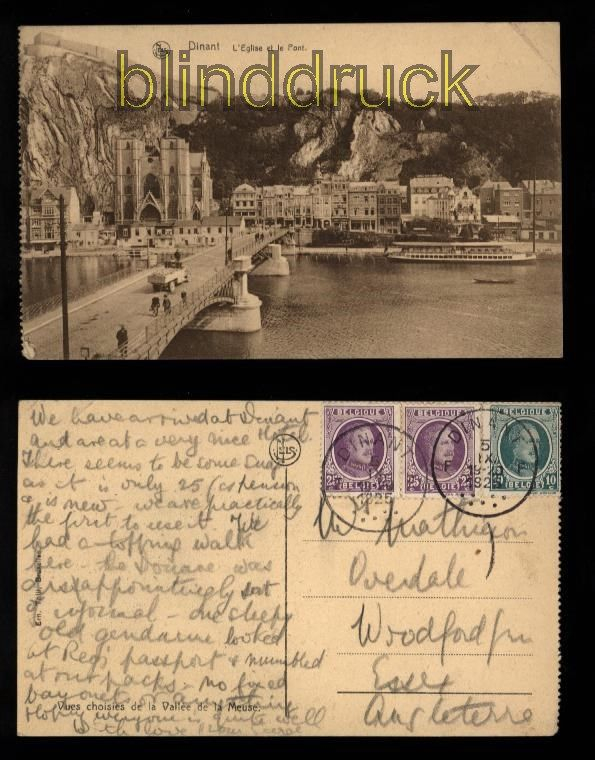 Dinant L'Eglise et le Pont.
blinddruck
We have arrived at Dinant
and are at a very nice Hotel.
There seems to be some
as it is only 25 pension
& is new - we are practically
the first to use it. We
had a topping walk
here. The Douane was
disappointingly
& informal - one sleepy
old gendarme looked
at Reg's passport & mumbled
at our packs - no fixed
bayonets or anything
Hoping everyone is quite well
With love from
Vues choisies de la Vallée de la Meuse.
BELGIQUE BELGIQUE BELGIQUE
25 25 10
(BELGIË) (BELGIË) (BELGIË) 10
DINANT DINANT
1925
Overdale
Woodford Grn
Essex
Angleterre